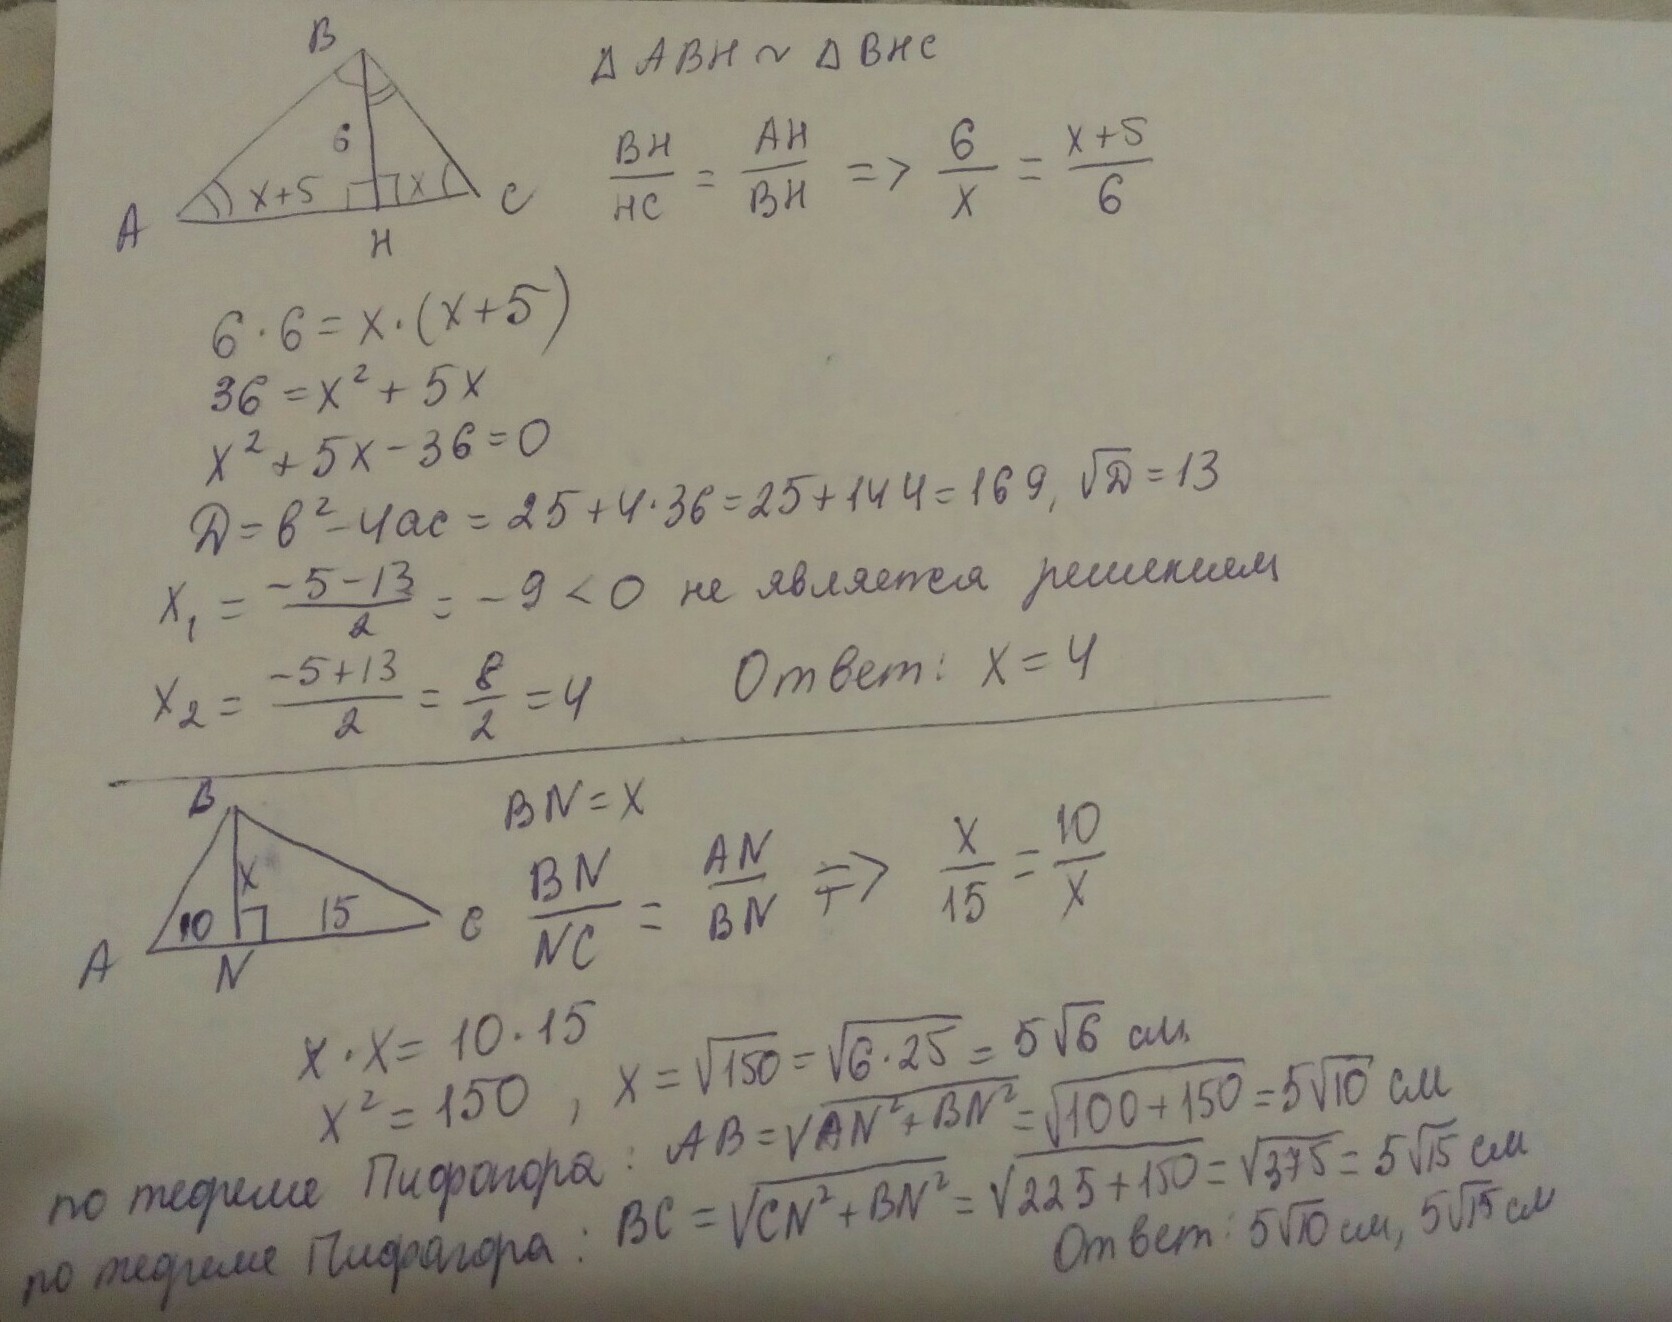 B
6
x+5
x
A
H
C
Δ ABH ~ Δ BHC
BH/HC = AH/BH => 6/x = (x+5)/6
6·6=x·(x+5)
36=x²+5x
x²+5x-36=0
Д=в²-4ас=25+4·36=25+144=169, √Д=13
x₁ = (-5-13)/2 = -9<0 не является решением
x₂ = (-5+13)/2 = 8/2 =4 Ответ: x=4
B
x
10
15
A
N
C
BN=x
BN/NC = AN/BN => x/15 = 10/x
x·x=10·15
x²=150, x=√150=√6·25=5√6 см
по теореме Пифагора: AB=√AN²+BN²=√100+150=5√10 см
по теореме Пифагора: BC=√CN²+BN²=√225+150=√375=5√15 см
Ответ: 5√10 см, 5√15 см